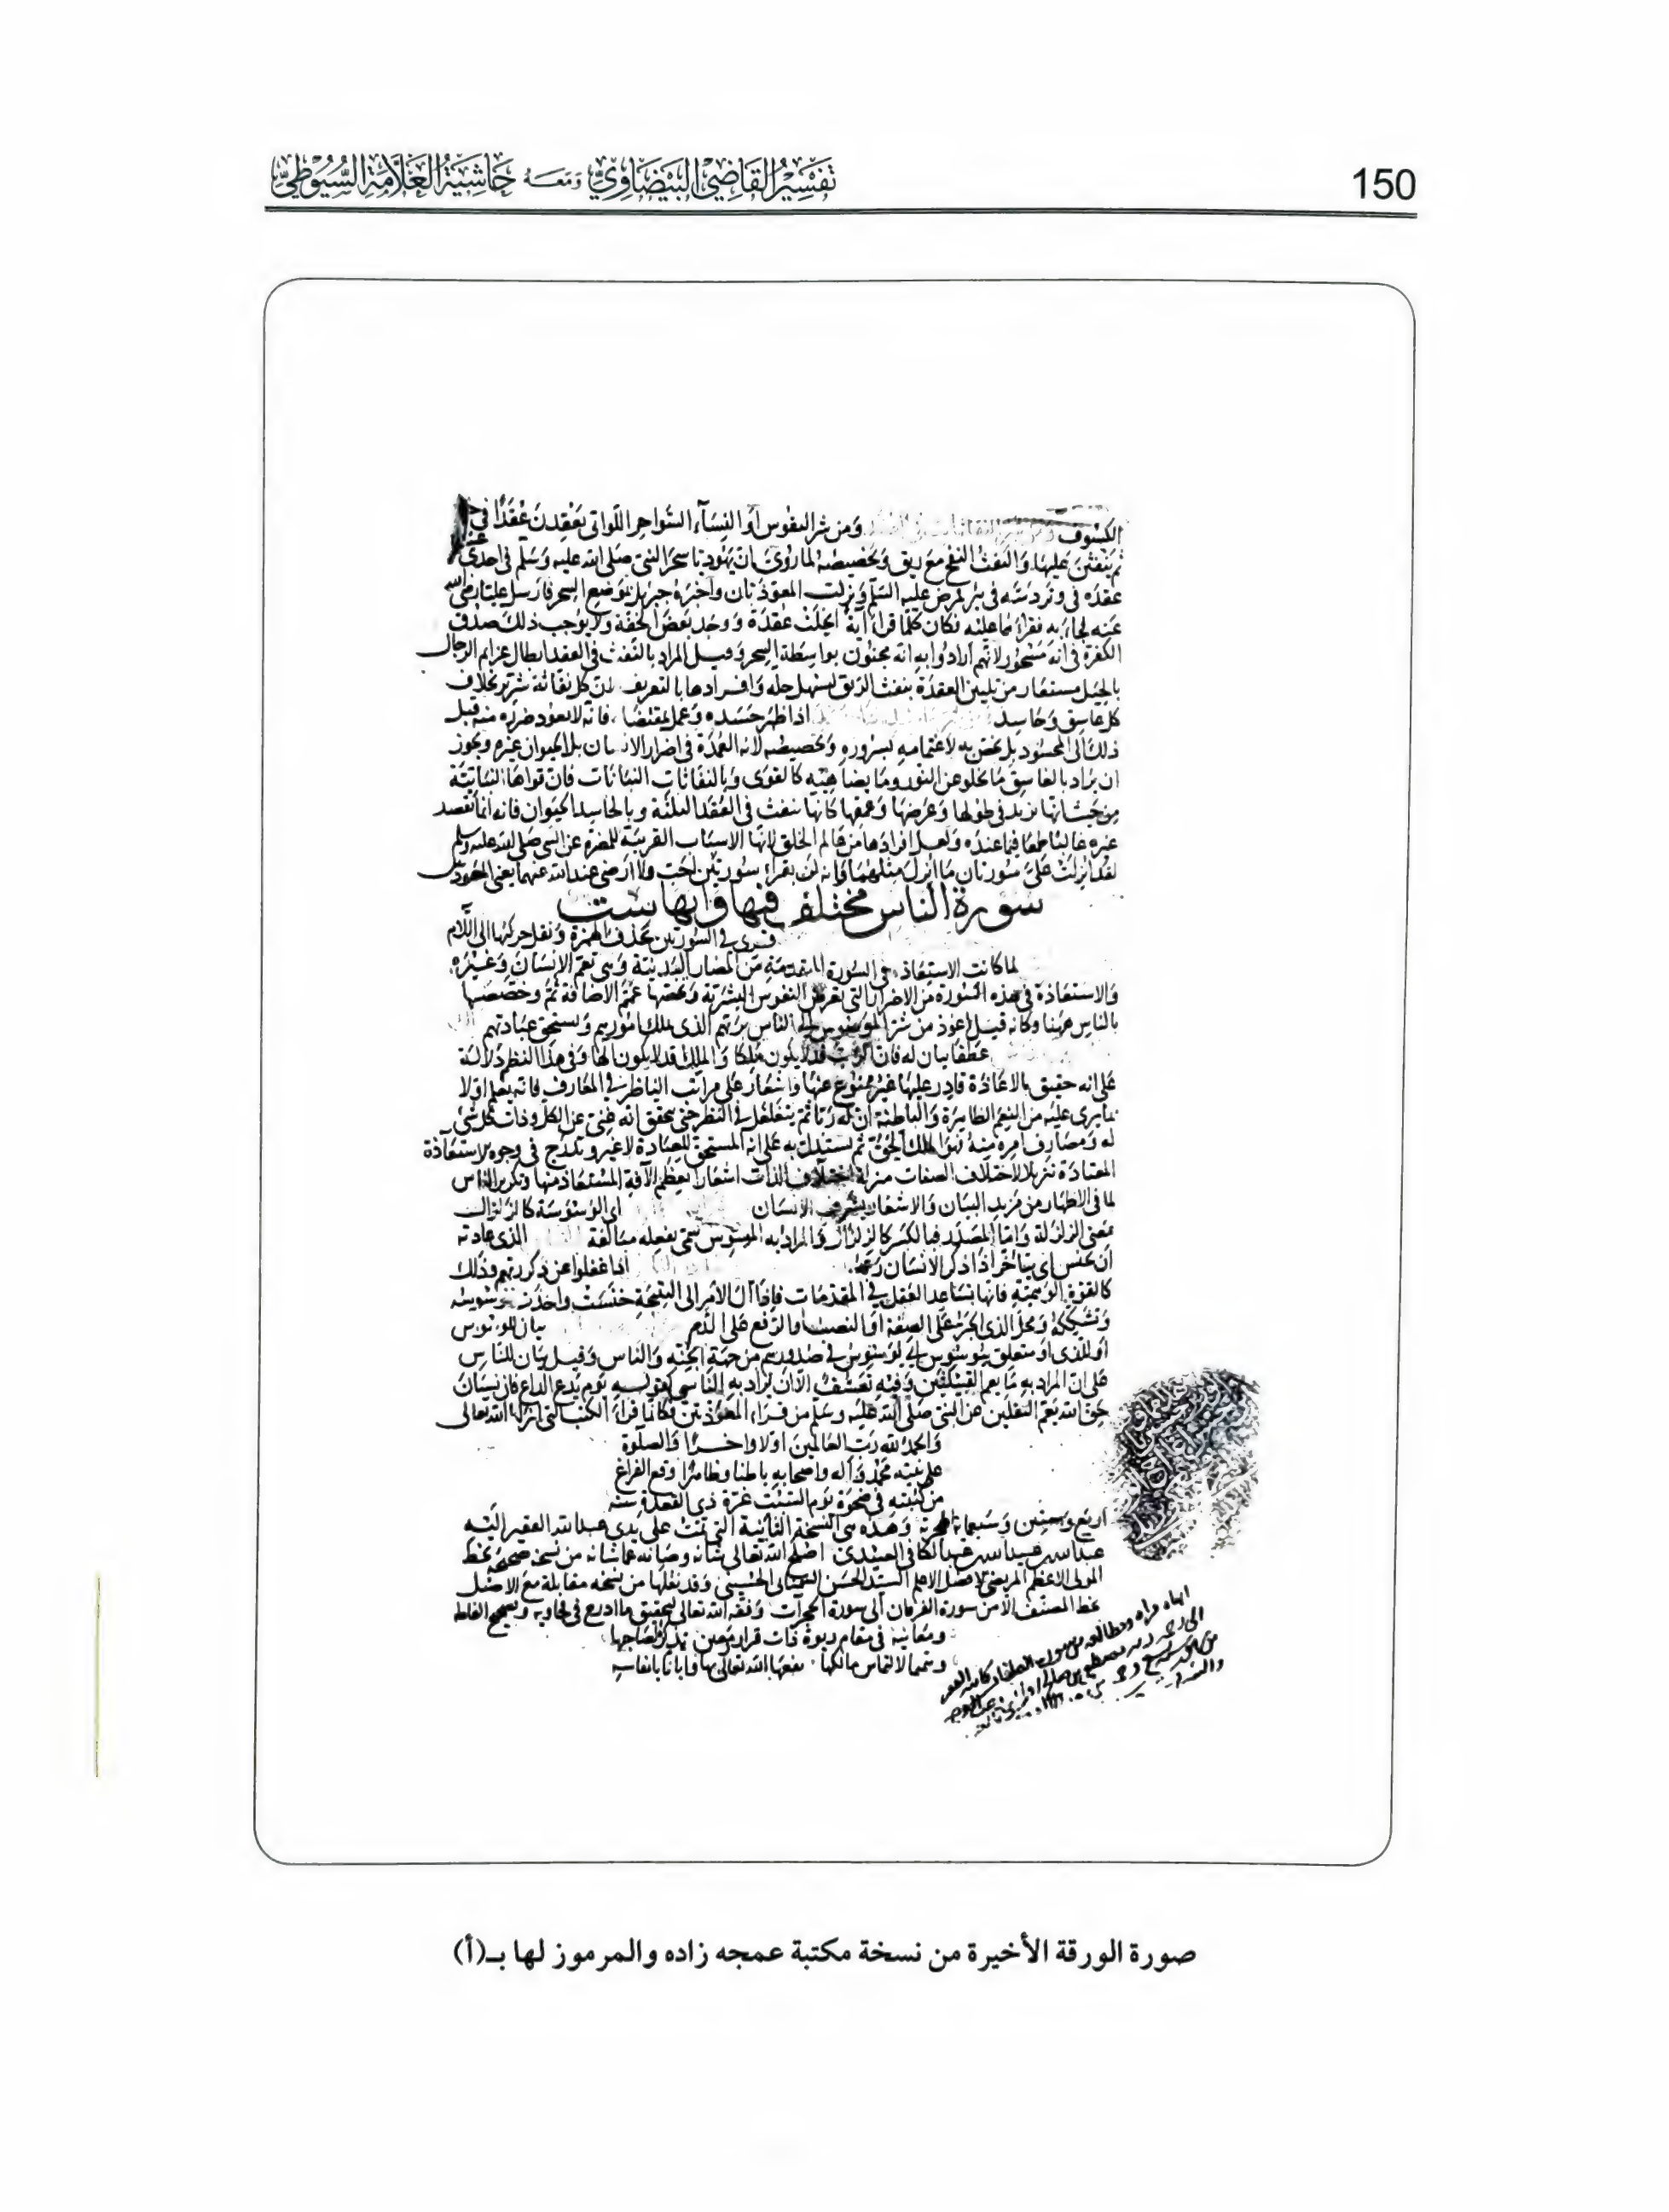 150
تفسير القاضي البيضاوي ومعه حاشية العلامة السيوطي
الكسوف ومن شر النفوس أو النساء السواحر اللواتي يعقدن عقدا في
ثم ينفثن عليها والنفث النفخ مع ريق وتخصيصه لما روي ان يهوديا سحر النبي صلى الله عليه وسلم في احدى
عقدة في وتر دسه في بئر فمرض عليه السلم ونزلت المعوذتان واخبره جبريل بموضع السحر فارسل عليا رضي الله
عنه فجاء به فقراءهما عليه فكان كلما قراء آية انحلت عقدة ووجد بعض الخفة ولا يوجب ذلك صدق
الكفرة في انه مسحور لانهم ارادوا به انه مجنون بواسطة السحر وقيل المراد بالنفث في العقد ابطال عزائم الرجال
بالحيل مستعار من تليين العقدة بنفث الريق ليسهل حله وافرادها بالتعريف لان كل نفاثة شريرة بخلاف
كل غاسق وحاسد اذا ظهر حسده وعمل بمقتضاه فانه لا يعود ضرره منه قبل
ذلك الى المحسود بل يخص به لاغتمامه بسروره وتخصيصه لانه العمدة في اضرار الانسان بل الحيوان غيره ويجوز
ان يراد بالغاسق ما يخلو عن النور وما يضاهيه كالقوى وبالنفاثات النباتات فان قواها النباتية
من حيث انها تزيد في طولها وعرضها وعمقها كانها تنفث في العقد الثلثة وبالحاسد الحيوان فانه انما يقصد
غيره غالبا طمعا فيما عنده ولعل افرادها من عالم الخلق لانها الاسباب القريبة للمضرة عن النبي صلى الله عليه وسلم
لقد انزلت علي سورتان ما انزل مثلهما وانه لن يقراء سورتين احب ولا ارضى عند الله منهما يعني المعوذتين
سورة الناس مختلف فيها وآيها ست
قرئ في السورتين بحذف الهمزة ونقل حركتها الى اللام
لما كانت الاستعاذة في السورة المتقدمة من المضار البدنية وهي تعم الانسان وغيره
والاستعاذة في هذه السورة من الاضرار التي تعرض للنفوس البشرية وتخصها عمم الاضافة ثم وخصصها
بالناس ههنا وكانه قيل اعوذ من شر الموسوس الى الناس بربهم الذي يملك امورهم ويستحق عبادتهم
عطفا بيان له فان الرب قد لا يكون ملكا والملك قد لا يكون الها وفي هذا النظم دلالة
على انه حقيق بالاعاذة قادر عليها غير ممنوع عنها واشعار على مراتب الناظر في المعارف فانه يعلم اولا
بما يرى عليه من النعم الظاهرة والباطنة ان له ربا ثم يتغلغل في النظر حتى يتحقق انه غني عن الكل وذات كل شئ
له ومصارف امره منه فهو الملك الحق ثم يستدل به على انه المستحق للعبادة لا غير وتدرج في وجوه الاستعاذة
المعتادة تنزيلا لاختلاف الصفات منزلة اختلاف الذات اشعارا بعظم الآفة المستعاذ منها وتكرير الناس
لما في الاظهار من مزيد البيان والاشعار بشرف الانسان اي الوسوسة كالزلزال
بمعنى الزلزلة واما المصدر فبالكسر كالزلزال والمراد به الموسوس سمي بفعله مبالغة الذي عادته
ان يخنس اي يتاخر اذا ذكر الانسان ربه اذا غفلوا عن ذكر ربهم وذلك
كالقوة الوهمية فانها تساعد العقل في المقدمات فاذا آل الامر الى النتيجة خنست واخذت توسوسه
وتشككه ومحل الذي الجر على الصفة او النصب او الرفع على الذم بيان للوسواس
او للذي او متعلق بيوسوس اي يوسوس في صدورهم من جهة الجنة والناس وقيل بيان للناس
على ان المراد به ما يعم القبيلتين وفيه تعسف الا ان يراد به الناسي كقوله يوم يدع الداع فان نسيان
حق الله يعم الثقلين عن النبي صلى الله عليه وسلم من قراء المعوذتين فكانما قراء الكتب التي انزلها الله تعالى
والحمد لله رب العالمين اولا واخرا والصلوة
على نبيه محمد وآله واصحابه باطنا وظاهرا وقع الفراغ
من كتبته في ضحوة يوم السبت غرة ذي القعدة سنة
اربع وستين وسبعماية وهذه هي النسخة الثانية التي تمت على يدي عبد الله الفقير اليه
اصلح الله تعالى شانه وصانه عما شانه من نسخة صحيحة بخط
المولى الاعظم السيد الحسن الحسيني وقد نقلها من نسخة مقابلة مع الاصل
بخط المصنف الا من سورة الفرقان الى سورة الحجرات وفقه الله تعالى لتحقيق ما ادرج في وتصحيح الفاظه
ومعانيه في مقام ربوة ذات قرار ومعين
نفعها الله تعالى بها وايانا بانفاسه
صورة الورقة الأخيرة من نسخة مكتبة عمجه زاده والمرموز لها بـ(أ)